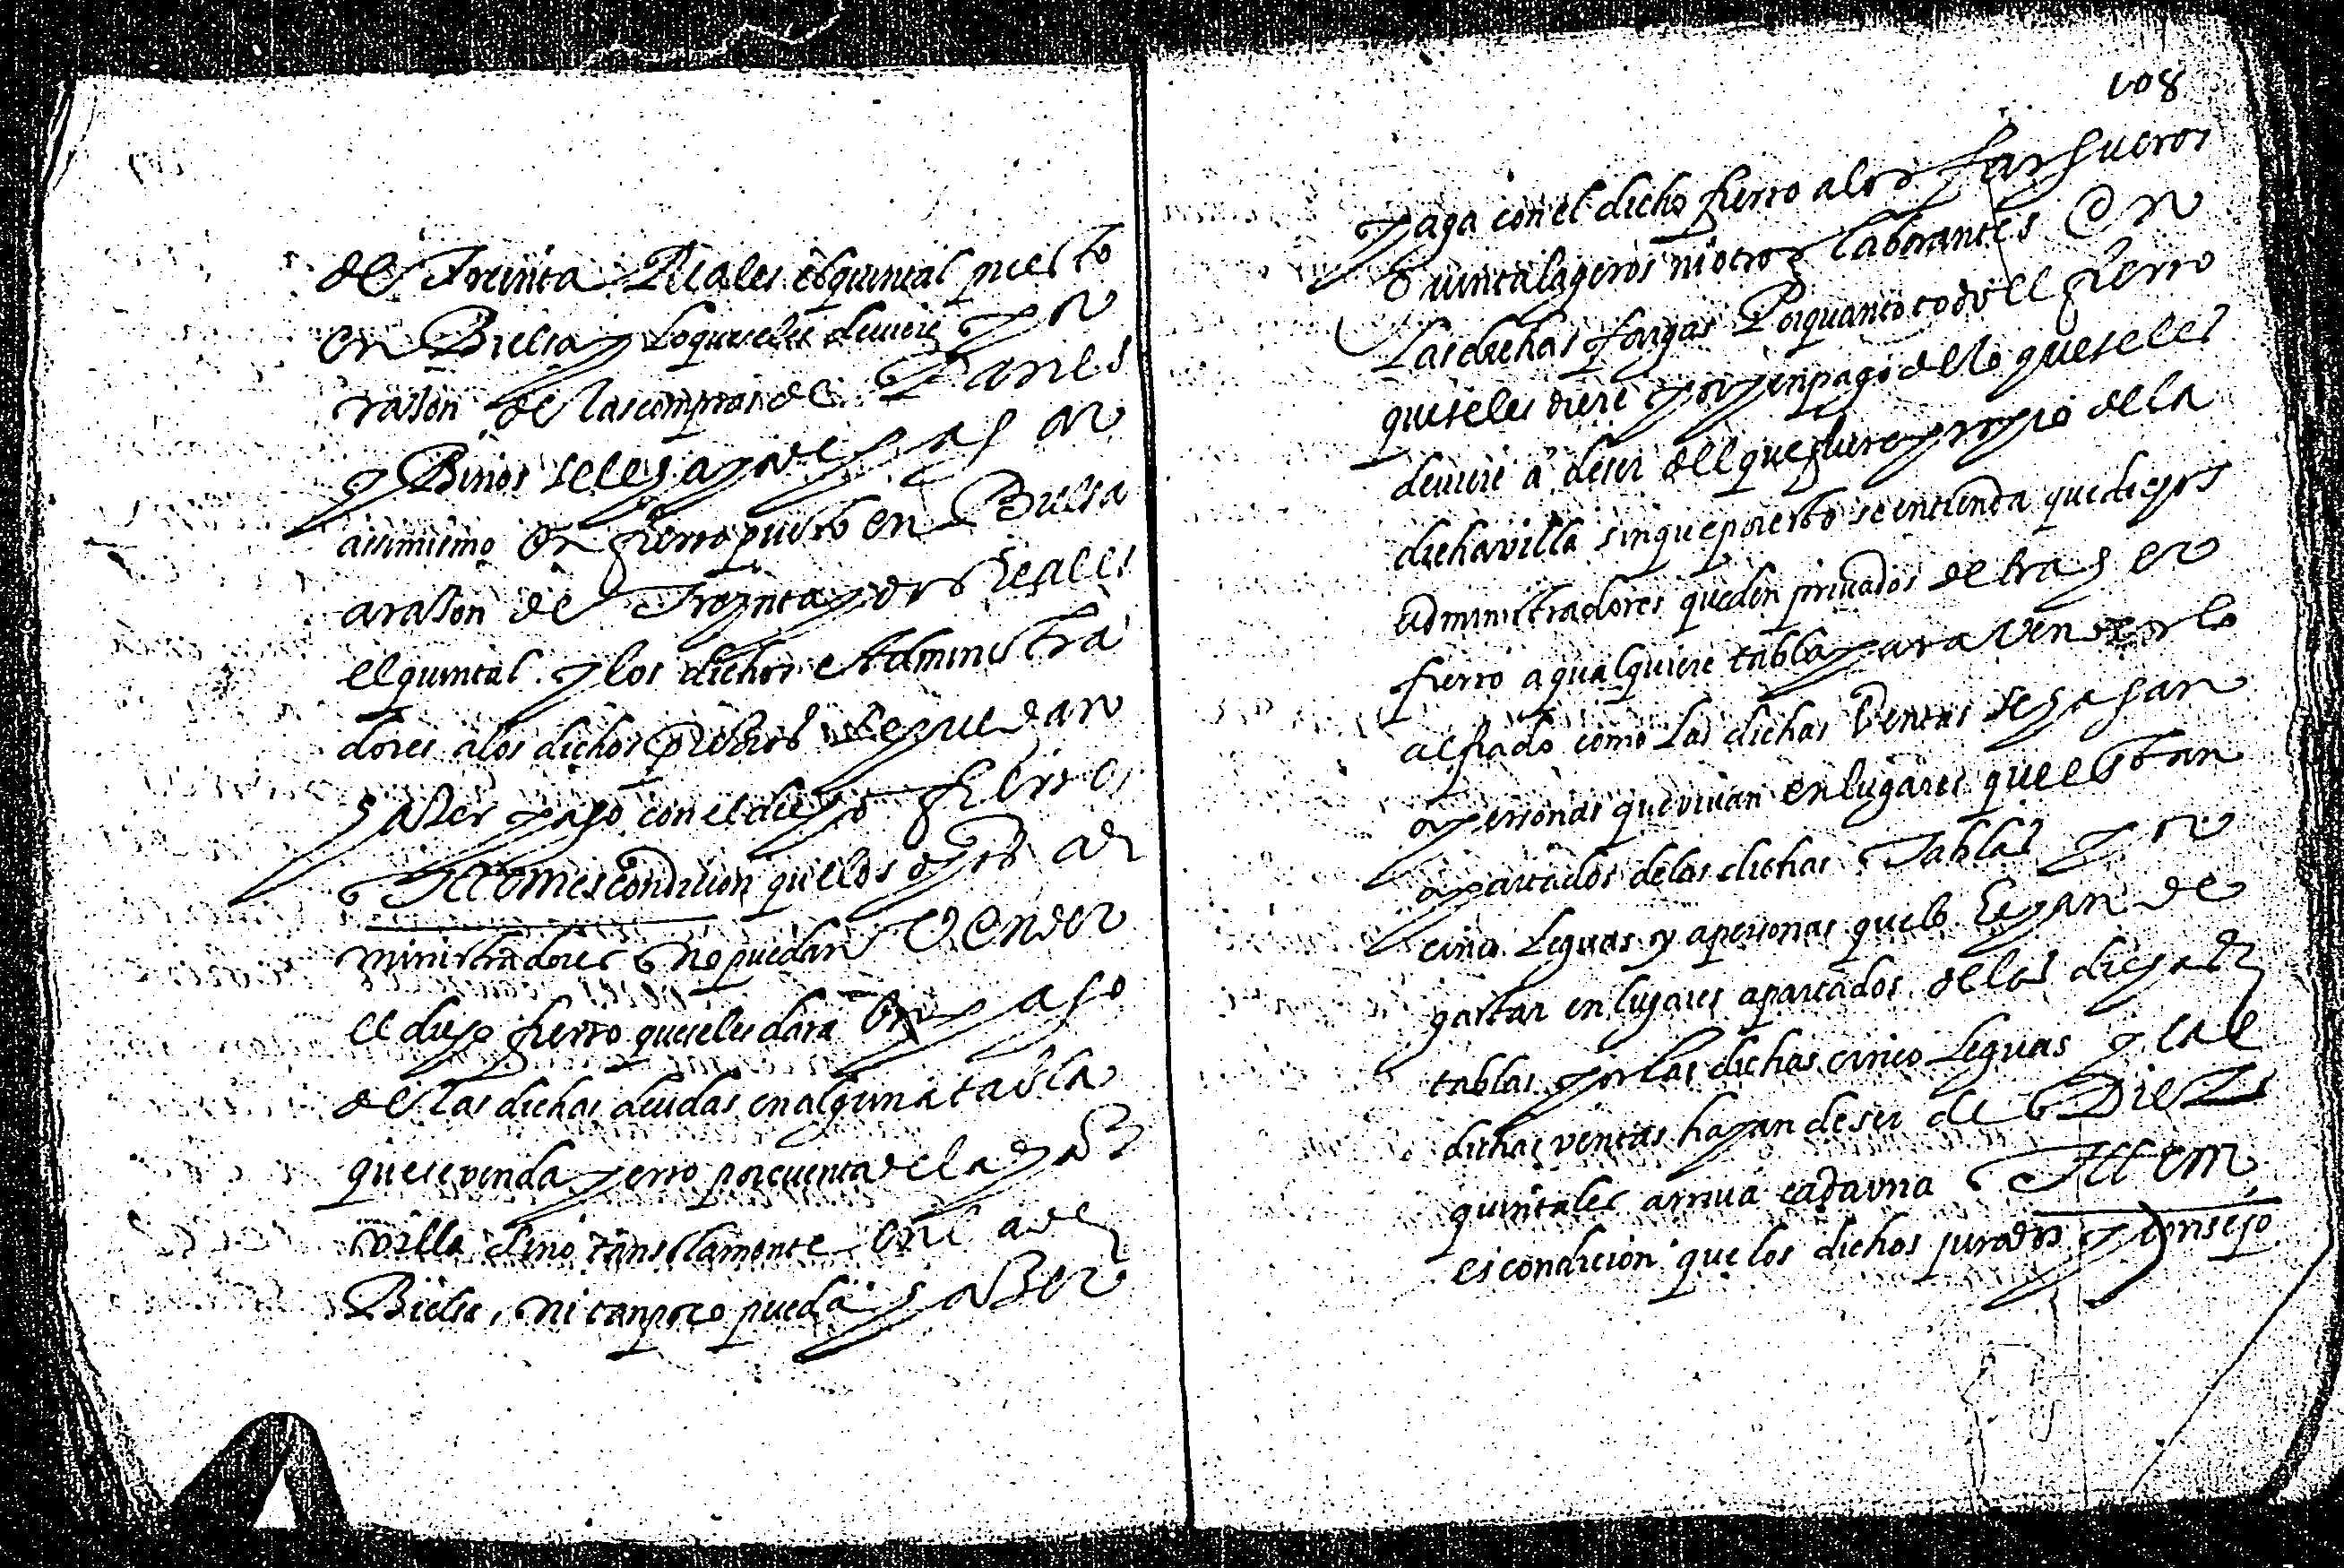 de Treinta Reales el quintal puesto
en Bielsa y lo que se les deuiere por
rason de las compras de Panes
y Binos se les aya de pagar
assimismo en fierro puesto en Bielsa
a rason de Treynta y dos Reales
el quintal. y los dichos Administra
dores a los dichos precios se puedan
haser pago con el dicho fierro
Ittem es condicion que los dhos ad
ministradores no puedan Vender
el dicho fierro que se les dara en pago
de las dichas deudas en alguna tabla
que se venda yerro por cuenta de la dha
villa sino tansolamente en la de
Bielsa, ni tanpoco pueda haser
108
paga con el dicho fierro a los fargueros
Quintalageros ni otros laborantes en
Las dichas fargas Por quanto todo el fierro
que se les diere por en pago de lo que se les
deuiere a de ser del que fuere propio de la
dicha villa sin que por esto se entienda que dichos
administradores queden priuados de traher
fierro a qualquiere tabla para venderlo
al fiado como las dichas Ventas se hagan
a personas que viuan en lugares que estan
apartados de las dichas Tablas por
cinco Leguas y a personas que lo hayan de
gastar en lugares apartados de las dichas
tablas por las dichas cinco Leguas y tal
dichas ventas hayan de ser de Diez
quintales arriua cada vna Ittem
es condicion que los dichos jurados y Consejo